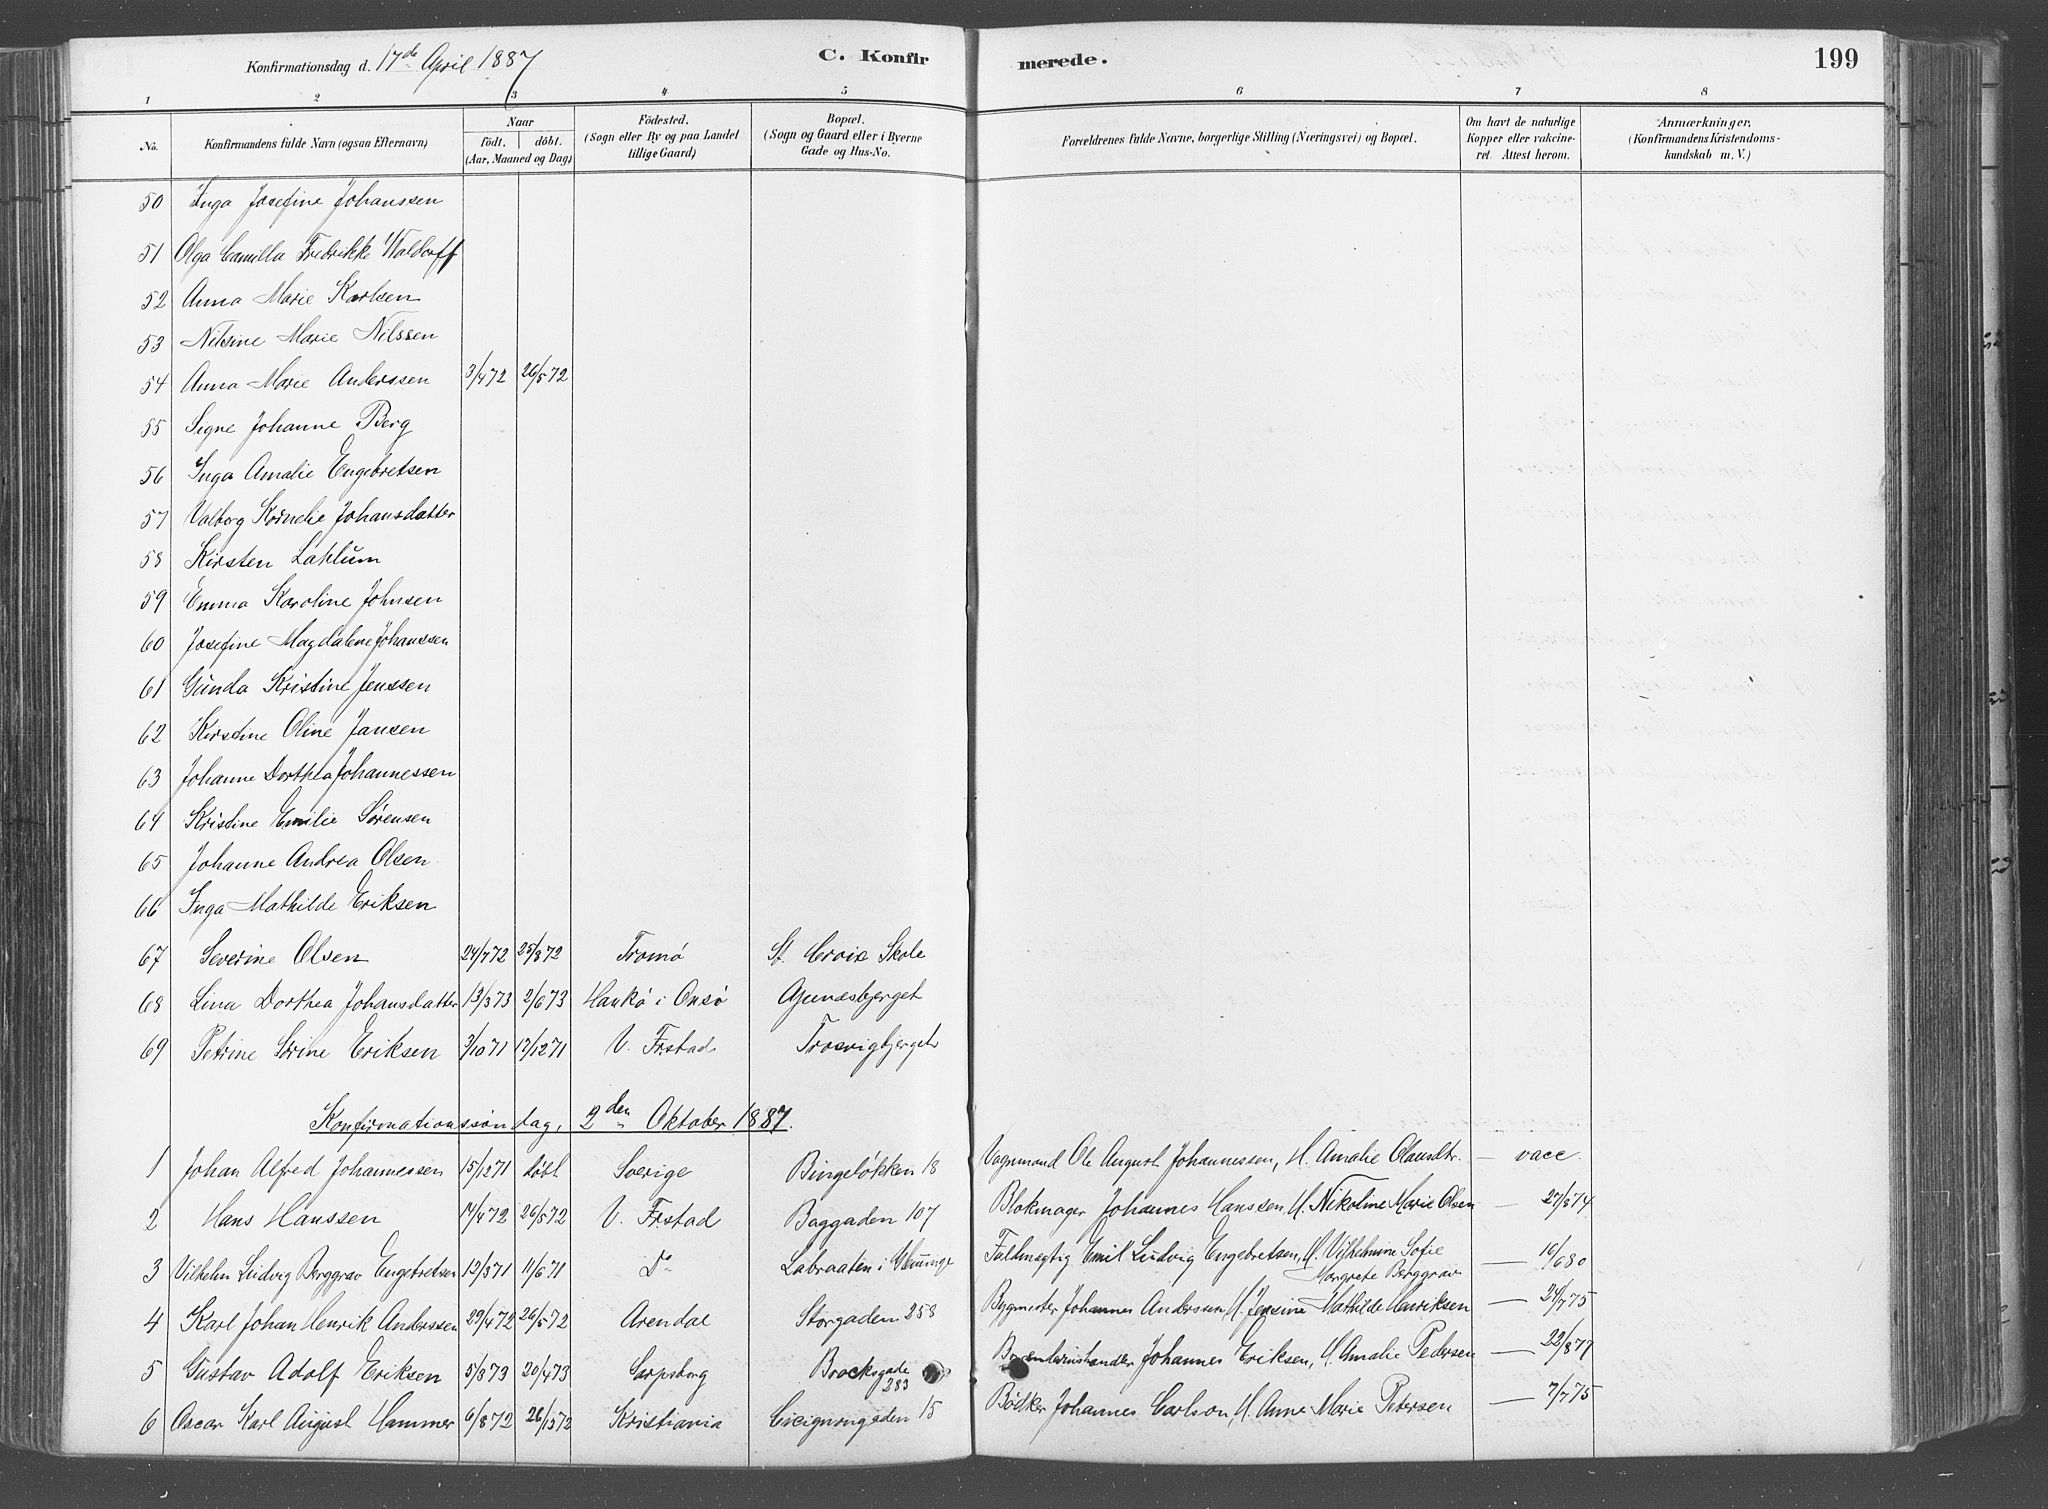 Konfirmationsdag d. 17de April 1887
C. Konfirmerede.
199
1 2 3 4 5 6 7 8
No.
Konfirmandens fulde Navn (ogsaa Efternavn)
Naar
födt. döbt.
(Aar, Maaned og Dag)
Födested.
(Sogn eller By og paa Landet
tillige Gaard)
Bopæl.
(Sogn og Gaard eller i Byerne
Gade og Hus-No.
Forældrenes fulde Navne, borgerlige Stilling (Næringsvei) og Bopæl.
Om havt de naturlige
Kopper eller vakcine-
ret. Attest herom.
Anmærkninger,
(Konfirmandens Kristendoms-
kundskab m. V.)
50 Inga Josefine Johanssen
51 Olga Camilla Fredrikke Waldorff
52 Anna Marie Karlsen
53 Nilsine Marie Nilssen
54 Anna Marie Anderssen 3/4 72 26/5 72
55 Signe Johanne Berg
56 Inga Amalie Engebretsen
57 Valborg Kornelie Johansdatter
58 Kirsten Laklum
59 Emma Karoline Johnsen
60 Josefine Magdalene Johanssen
61 Gunda Kristine Jenssen
62 Kirstine Oline Jansen
63 Johanne Dorthea Johannessen
64 Kristine Emilie Sørensen
65 Johanne Andrea Olsen
66 Inga Mathilde Eriksen
67 Severine Olsen 24/7 72 25/8 72 Tromø St. Croix Skole
68 Lina Dorthea Johansdatter 13/3 73 2/6 73 Hankø i Onsø
69 Petrine Sørine Eriksen 3/10 71 17/12 71 V. Frstad Trosvigbjerget
Konfirmationssøndag, 2den Oktober 1887.
1 Johan Alfred Johannessen 15/12 71 døbt Sverige Bingeløkken 18 Vognmand Ole August Johannessen, H. Amalie Olausdtr. — vacc.
2 Hans Hanssen 14/4 72 26/5 72 V. Frstad Baggaden 107 Blokmager Johannes Hanssen, H. Nikoline Marie Olsen — 27/8 74
3 Vilhelm Ludvig Berggrav Engebretsen 13/3 71 11/6 71 Do Labraaten i Glemminge Fuldmægtig Emil Ludvig Engebretsen, H. Vilhelmine Sofie
Margrete Berggrav — 16/6 80
4 Karl Johan Henrik Anderssen 29/4 72 26/5 72 Arendal Storgaden 258 Bygmester Johannes Anderssen, H. Jensine Mathilde Henriksen — 24/7 75
5 Gustav Adolf Eriksen 5/3 73 20/4 73 Sarpsborg Brocksgade
283 Johannes Eriksen, H. Amalie Pedersen — 22/8 79
6 Oscar Karl August Hammer 6/8 72 26/12 72 Kristiania Cicignongaden 15 Bødker Johannes Carlson, H. Anne Marie Petersen — 7/7 75